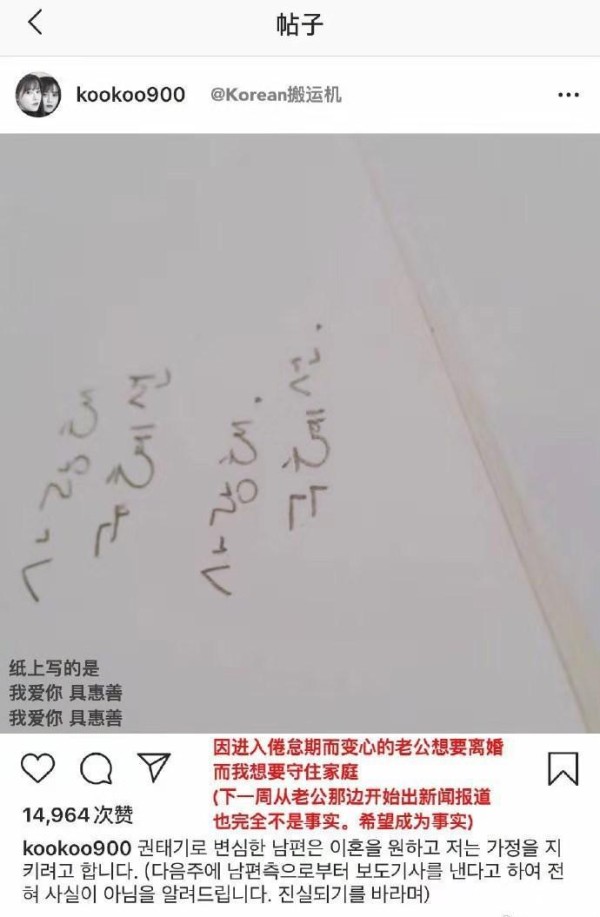 帖子
kookoo900 @Korean搬运机
纸上写的是
我爱你 具惠善
我爱你 具惠善
因进入倦怠期而变心的老公想要离婚
而我想要守住家庭
(下一周从老公那边开始出新闻报道
也完全不是事实。希望成为事实)
14,964次赞
kookoo900 권태기로 변심한 남편은 이혼을 원하고 저는 가정을 지
키려고 합니다. (다음주에 남편측으로부터 보도기사를 낸다고 하여 전
혀 사실이 아님을 알려드립니다. 진실되기를 바라며)